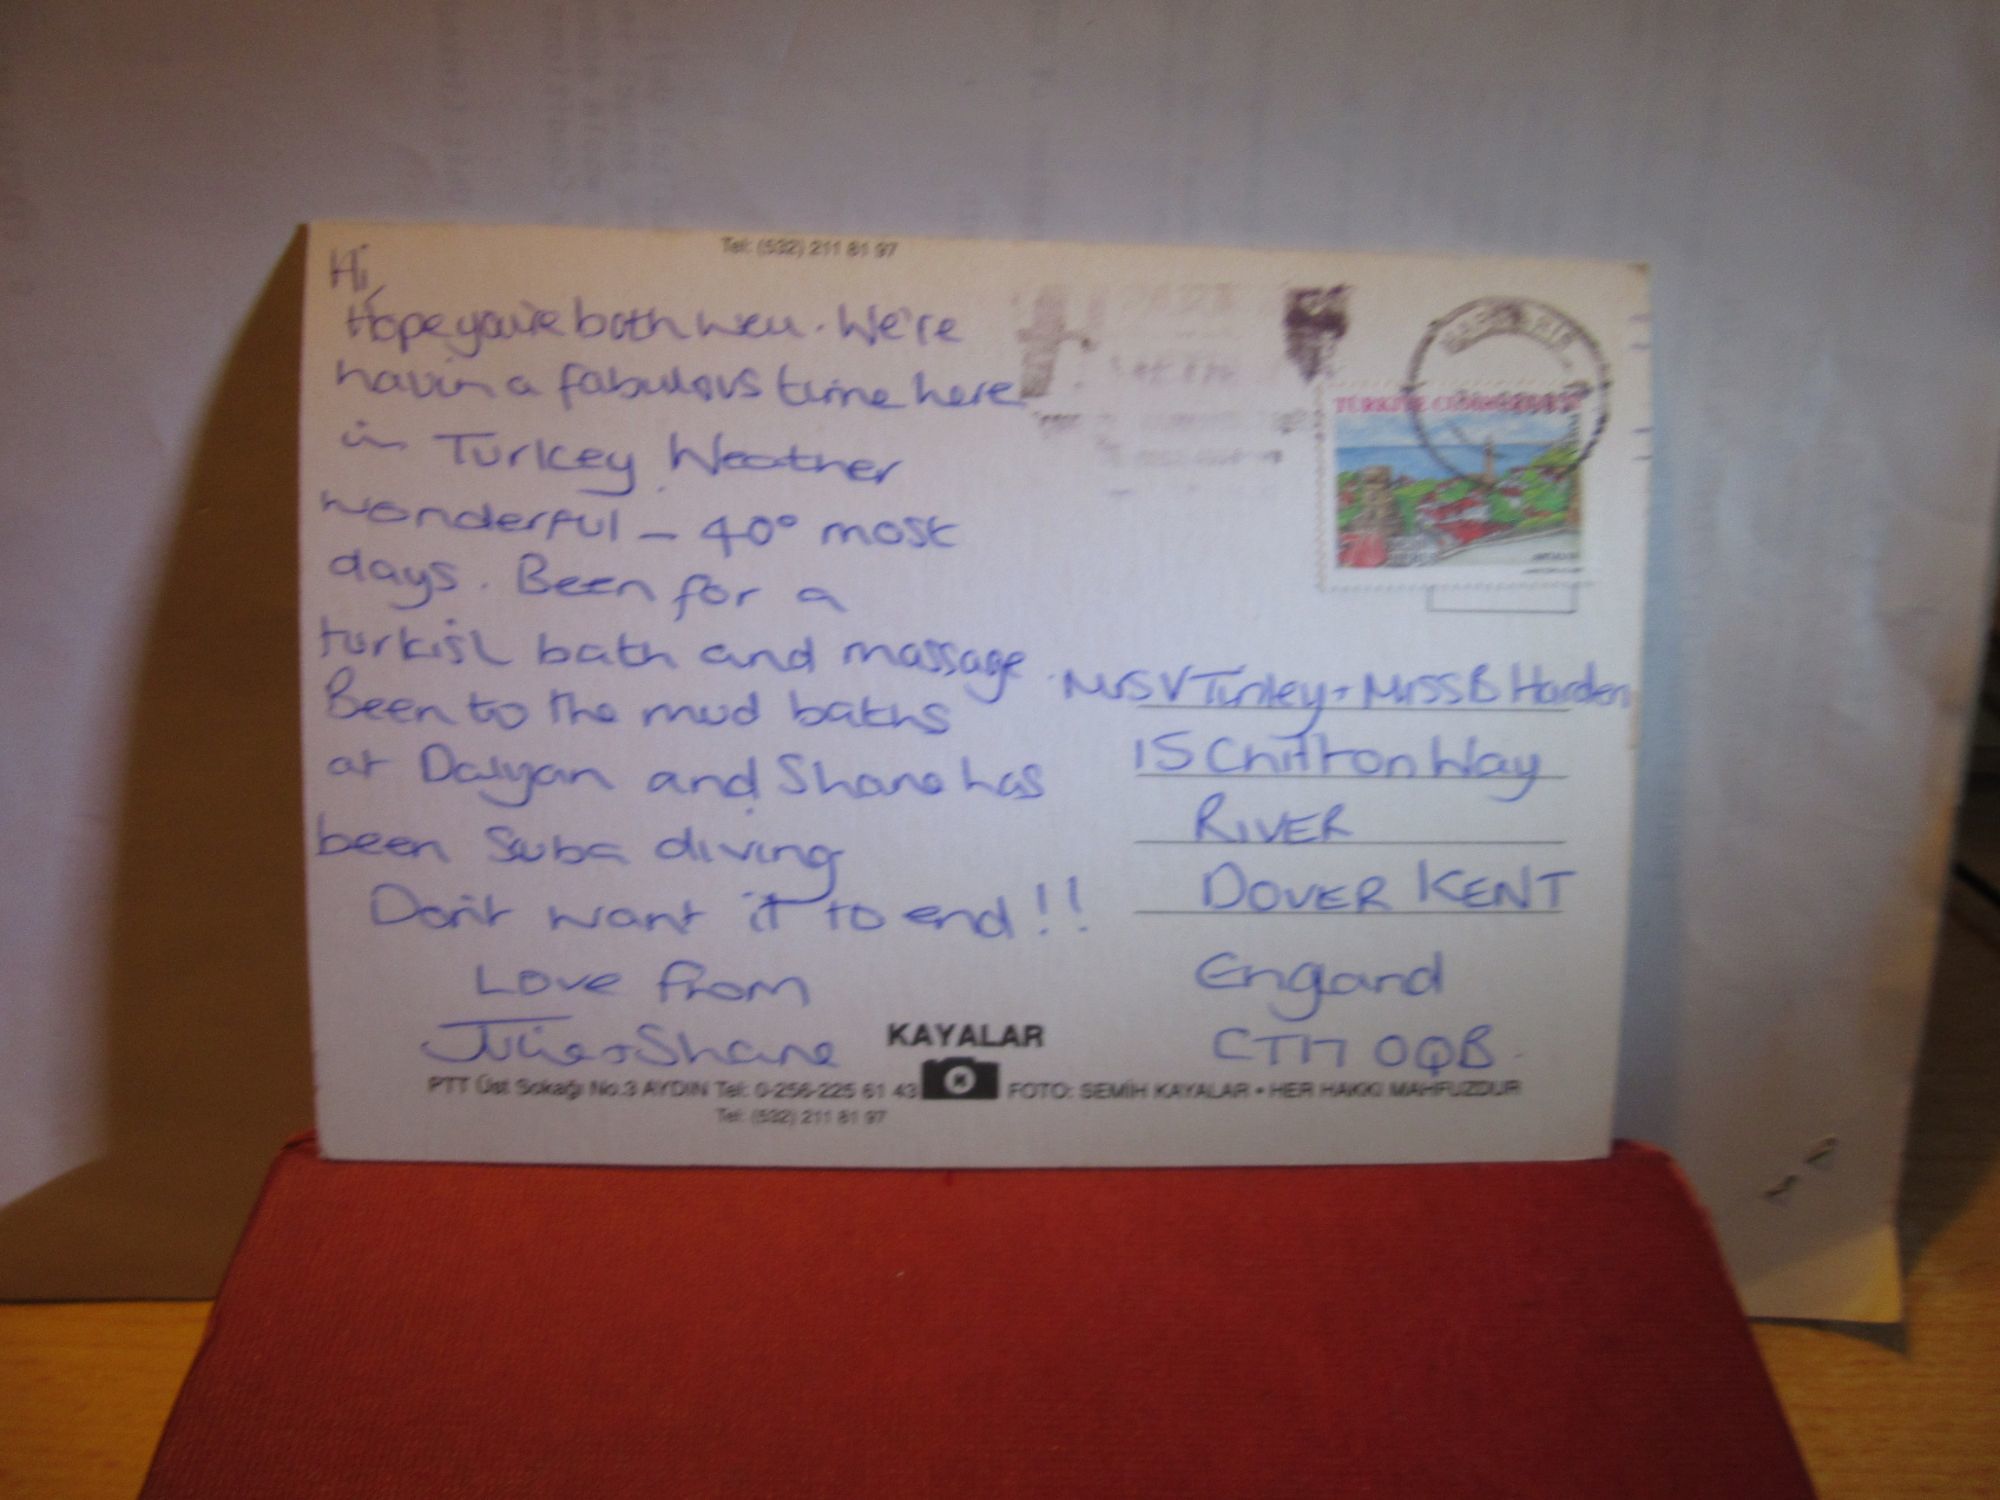 Tel: (532) 211 81 97
Hi,
Hope you're both well. We're
havin a fabulous time here
in Turkey. Weather
wonderful – 40° most
days. Been for a
turkish bath and massage.
Been to the mud baths
at Dalyan and Shane has
been Suba diving
Don't want it to end!!
Love from
Julie + Shane
MARMARIS
TÜRKİYE CUMHURİYETİ
Mrs V Tinley + Miss B Harden
15 Chilton Way
RIVER
DOVER KENT
Engand
CT17 0QB.
KAYALAR
PTT Üst Sokağı No.3 AYDIN Tel: 0-256-225 61 43
FOTO: SEMİH KAYALAR • HER HAKKI MAHFUZDUR
Tel: (532) 211 81 97